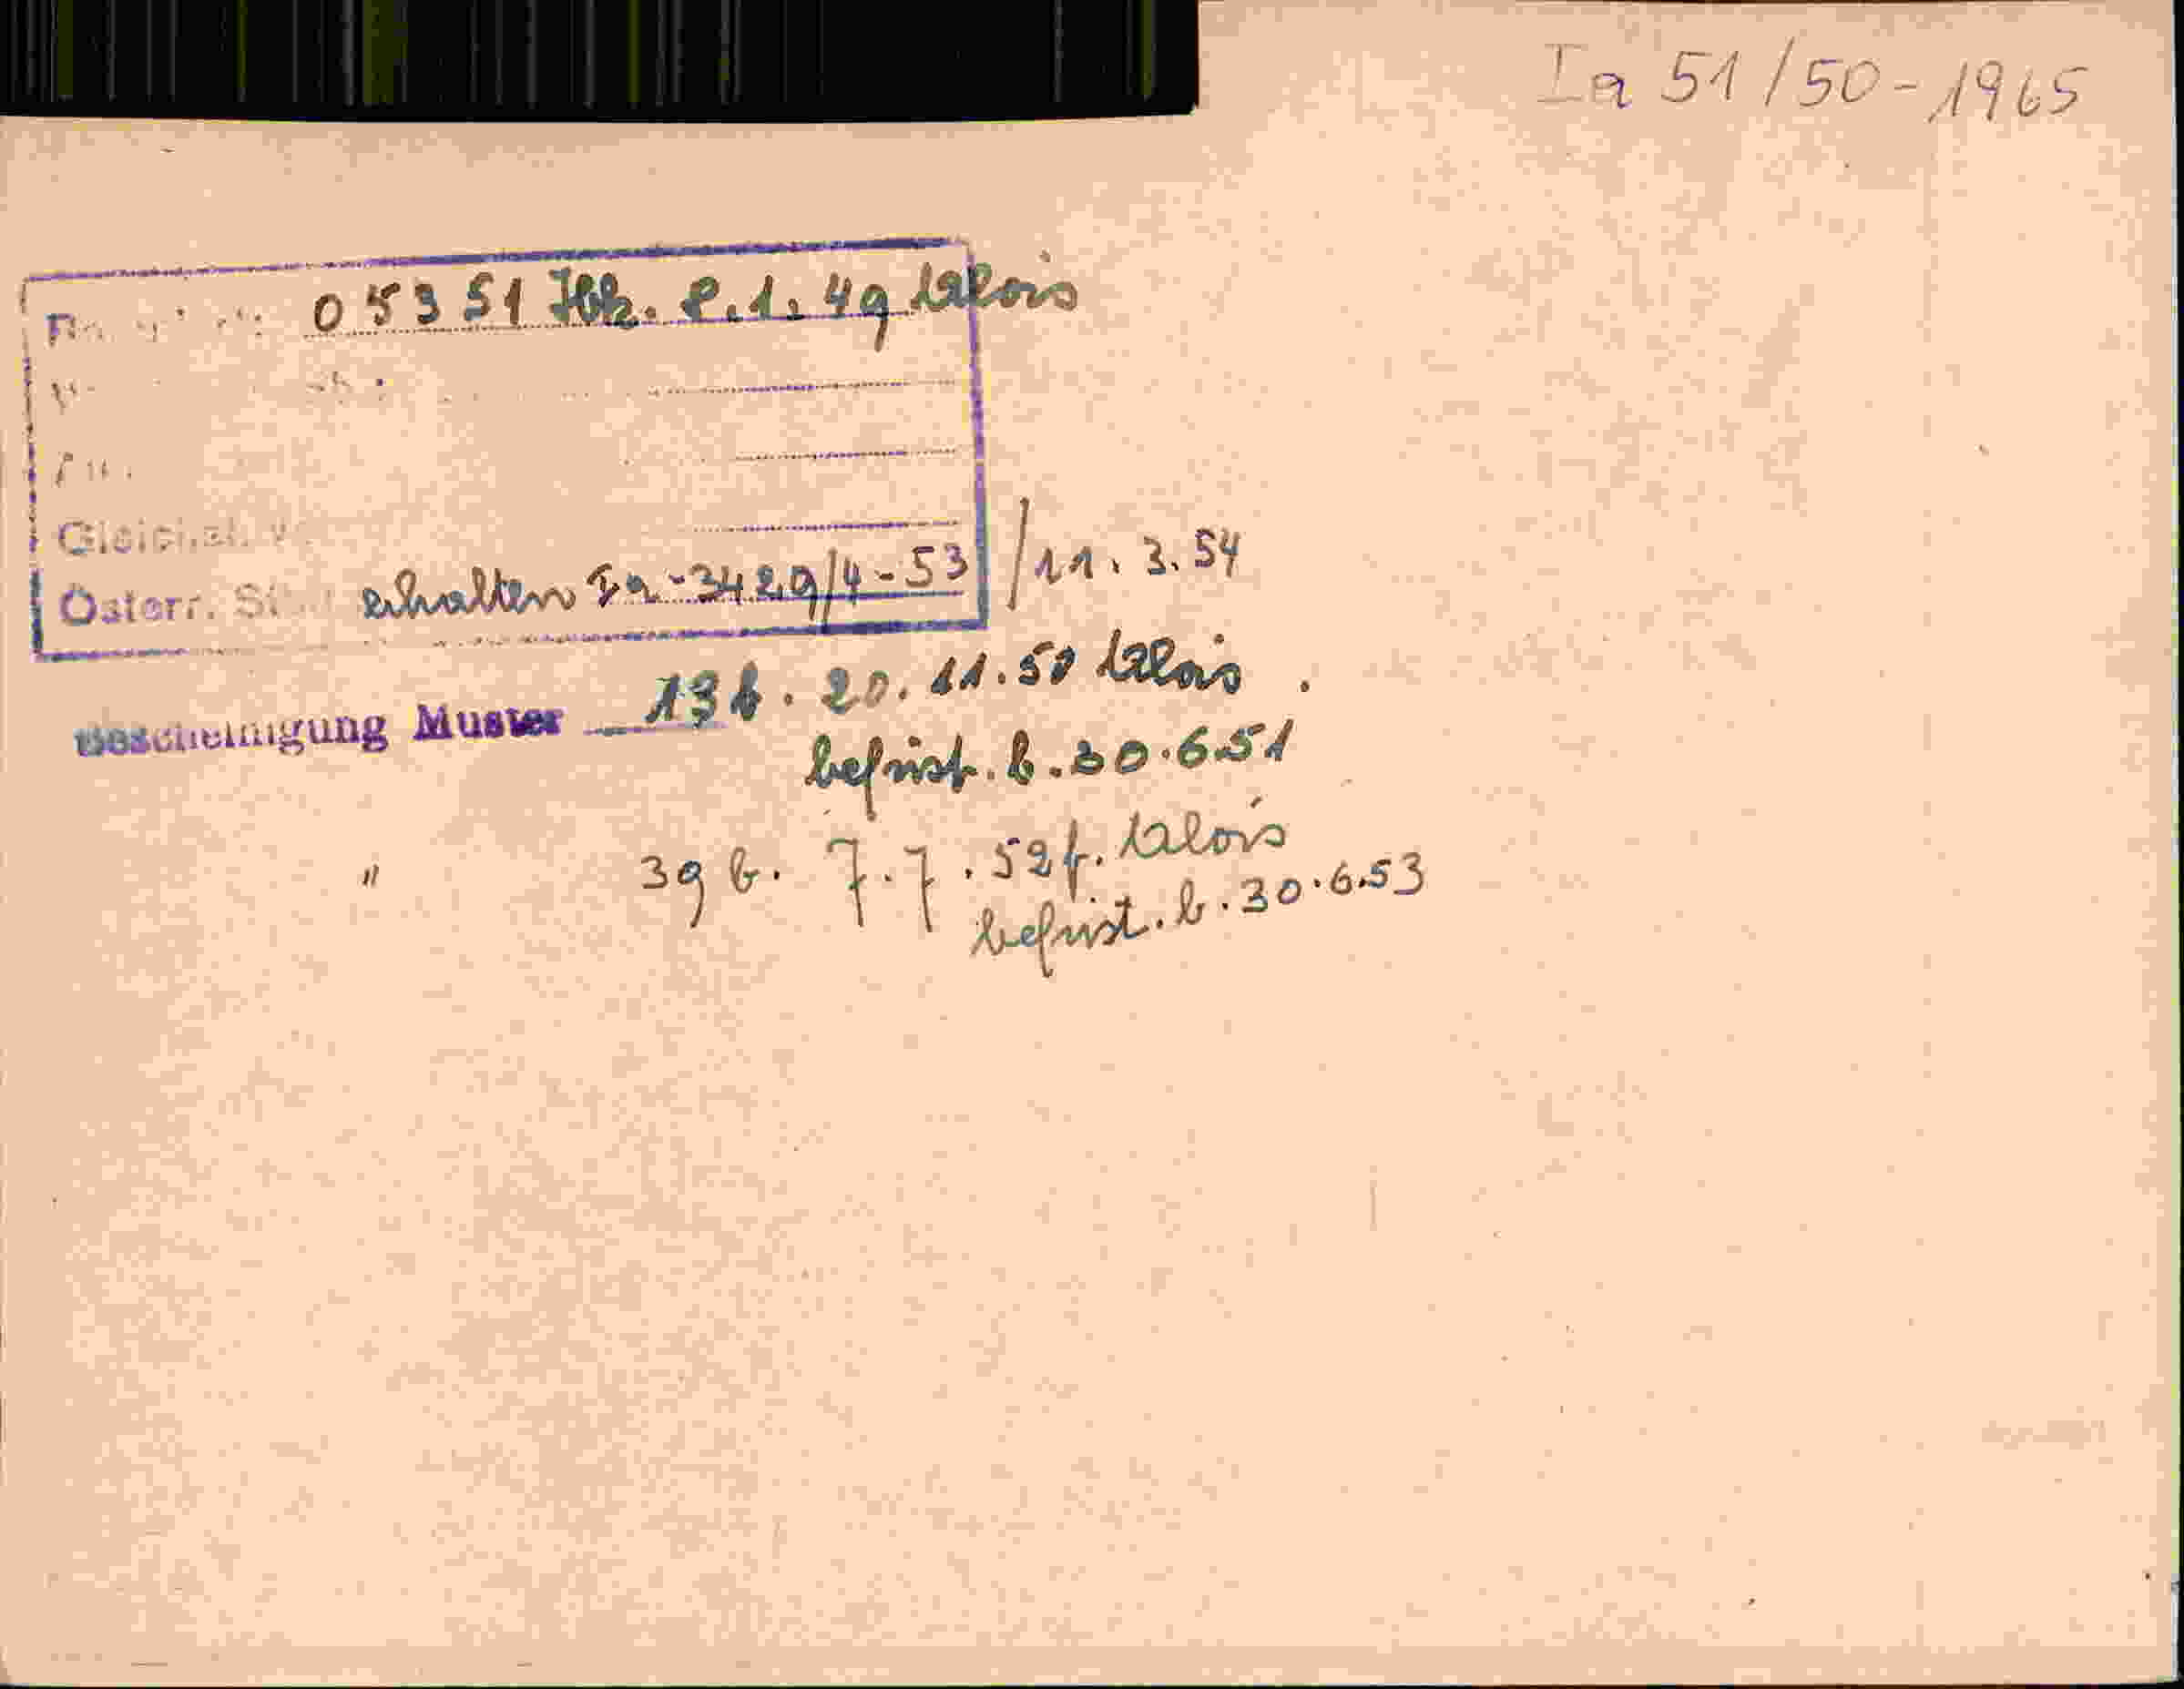 Ia 51/50-1965
05351 Hbk. 2.1.49 Alois
Österr. erhalten Ia-3429/4-53 /11.3.54
Bescheinigung Muster 13b. 20.11.50 Alois.
befrist. b. 30.6.51
" 39 b. 7.7.52 f. Alois
befrist. b. 30.6.53